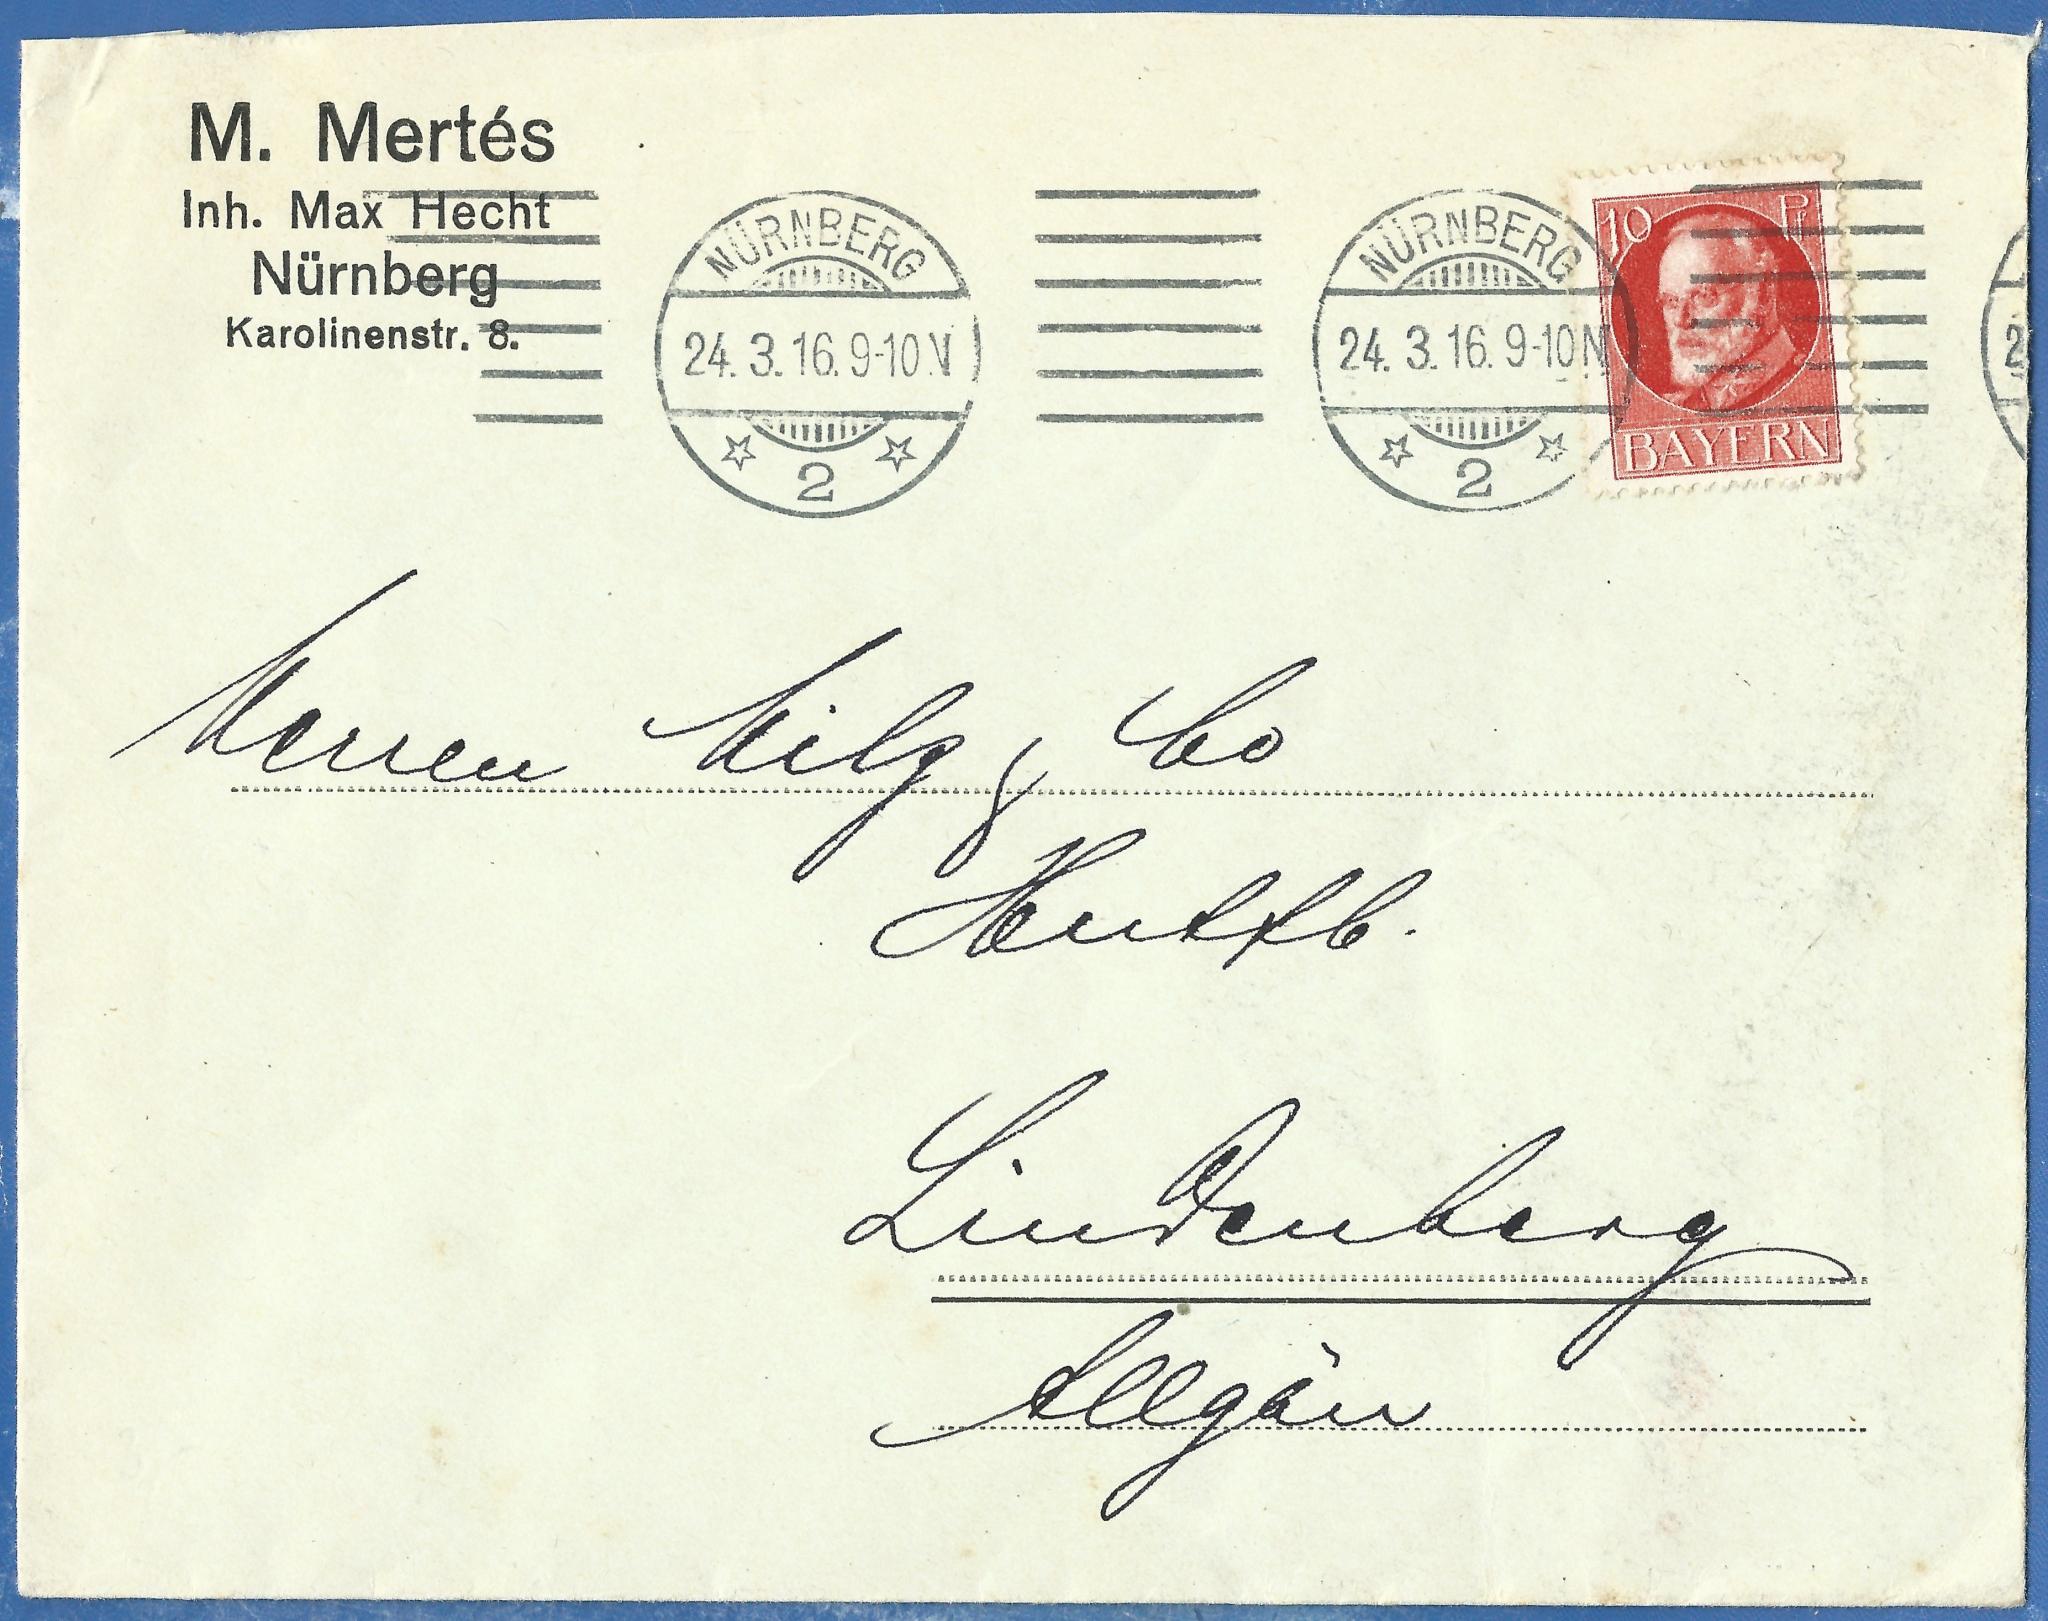 M. Mertés
Inh. Max Hecht
Nürnberg
Karolinenstr. 8.
NÜRNBERG
24. 3. 16. 9-10 V
2
NÜRNBERG
24. 3. 16. 9-10 N
2
10 Pf
BAYERN
2
Herren Milz & Co
Hutfb.
Lindenberg
Allgäu